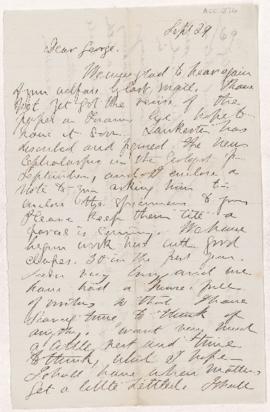 Sept 29
69
Dear George.
We were glad to hear again
of your welfare by last mail. I have
not yet got the revise of the
paper on but hope to
have it soon. Lankester has
described and figured the new
Cephalaspis in the Geologist for
September, and I enclose a
note to you asking him to
enclose the specimens to you
Please keep them till a
parcel is coming. We have
begun work here with good
classes. 50 in the first year.
Been very busy and we
have had a house full
of visitors so that I have
scarcely time to think of
anything. I want very much
a little rest and time
to think, which I hope
I shall have when matters
get a little settled. I shall